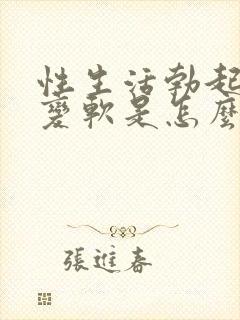 性生活勃起
变軟是怎麼
張進春